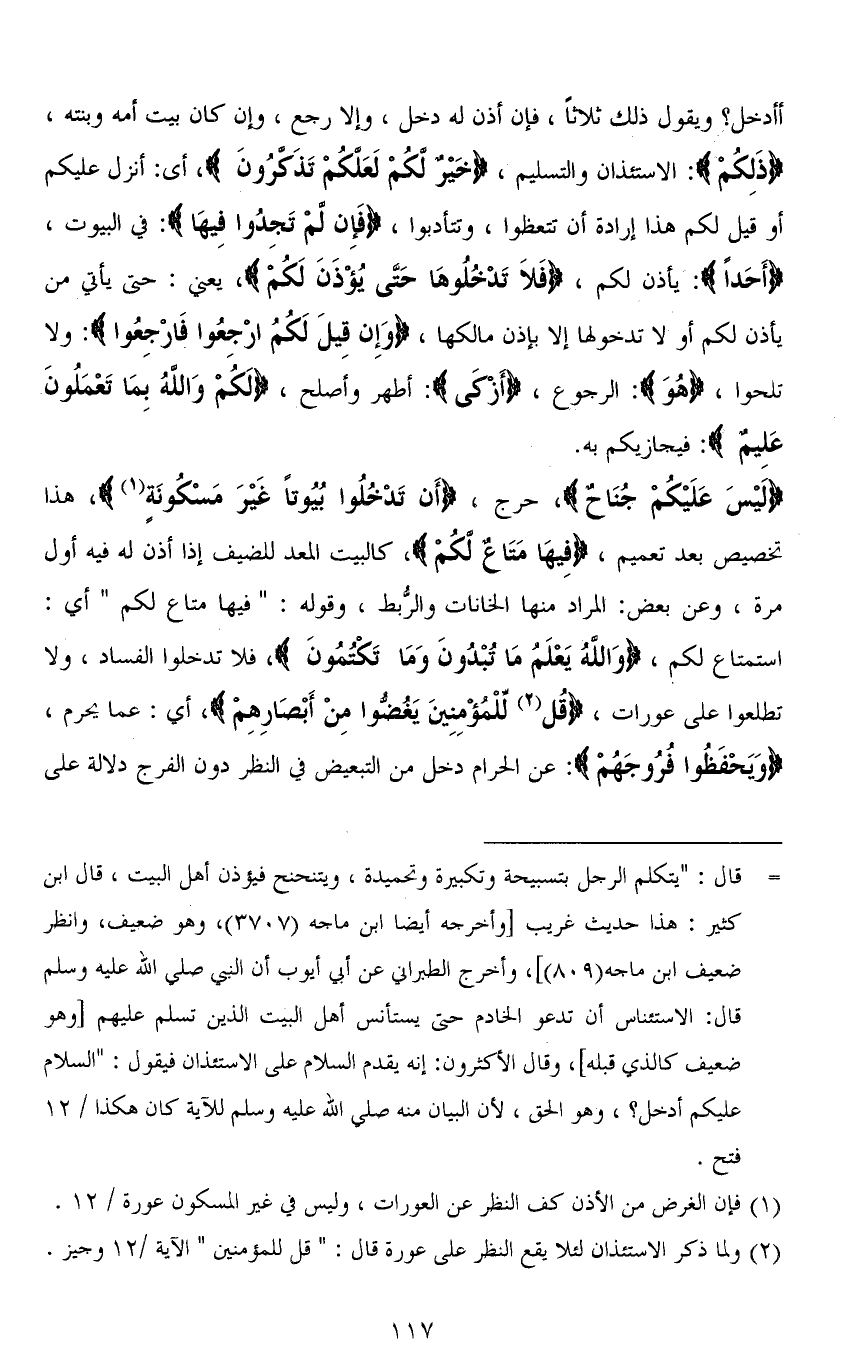 أأدخل؟ ويقول ذلك ثلاثاً ، فإن أذن له دخل ، وإلا رجع ، وإن كان بيت أمه وبنته ،
﴿ذَلِكُمْ﴾: الاستئذان والتسليم ، ﴿خَيْرٌ لَّكُمْ لَعَلَّكُمْ تَذَكَّرُونَ ﴾، أى: أنزل عليكم
أو قيل لكم هذا إرادة أن تتعظوا ، وتتأدبوا ، ﴿فَإِن لَّمْ تَجِدُوا فِيهَا ﴾: في البيوت ،
﴿أَحَداً ﴾: يأذن لكم ، ﴿فَلاَ تَدْخُلُوهَا حَتَّى يُؤْذَنَ لَكُمْ﴾، يعني : حتى يأتي من
يأذن لكم أو لا تدخولها إلا بإذن مالكها ، ﴿وَإِن قِيلَ لَكُمُ ارْجِعُوا فَارْجِعُوا﴾: ولا
تلحوا ، ﴿هُوَ ﴾: الرجوع ، ﴿أَزْكَى﴾: أطهر وأصلح ، ﴿لَكُمْ وَاللَّهُ بِمَا تَعْمَلُونَ
عَلِيمٌ ﴾: فيجازيكم به.
﴿لَيْسَ عَلَيْكُمْ جُنَاحٌ﴾، حرج ، ﴿أَن تَدْخُلُوا بُيُوتاً غَيْرَ مَسْكُونَةٍ(١)﴾، هذا
تخصيص بعد تعميم ، ﴿فِيهَا مَتَاعٌ لَّكُمْ﴾، كالبيت المعد للضيف إذا أذن له فيه أول
مرة ، وعن بعض: المراد منها الخانات والرُّبط ، وقوله : " فيها متاع لكم " أي :
استمتاع لكم ، ﴿وَاللَّهُ يَعْلَمُ مَا تُبْدُونَ وَمَا تَكْتُمُونَ ﴾، فلا تدخلوا الفساد ، ولا
تطلعوا على عورات ، ﴿قُل(٢) لِّلْمُؤْمِنِينَ يَغُضُّوا مِنْ أَبْصَارِهِمْ﴾، أي : عما يحرم ،
﴿وَيَحْفَظُوا فُرُوجَهُمْ﴾: عن الحرام دخل من التبعيض في النظر دون الفرج دلالة على
= قال : "يتكلم الرجل بتسبيحة وتكبيرة وتحميدة ، ويتنحنح فيؤذن أهل البيت ، قال ابن
كثير : هذا حديث غريب [وأخرجه أيضا ابن ماجه (٣٧٠٧)، وهو ضعيف، وانظر
ضعيف ابن ماجه(٨٠٩)]، وأخرج الطبراني عن أبي أيوب أن النبي صلي الله عليه وسلم
قال: الاستئناس أن تدعو الخادم حتى يستأنس أهل البيت الذين تسلم عليهم [وهو
ضعيف كالذي قبله]، وقال الأكثرون: إنه يقدم السلام على الاستئذان فيقول : "السلام
عليكم أدخل؟ ، وهو الحق ، لأن البيان منه صلي الله عليه وسلم للآية كان هكذا / ١٢
فتح .
(١) فإن الغرض من الأذن كف النظر عن العورات ، وليس في غير المسكون عورة / ١٢ .
(٢) ولما ذكر الاستئذان لئلا يقع النظر على عورة قال : " قل للمؤمنين " الآية /١٢ وجيز .
١١٧